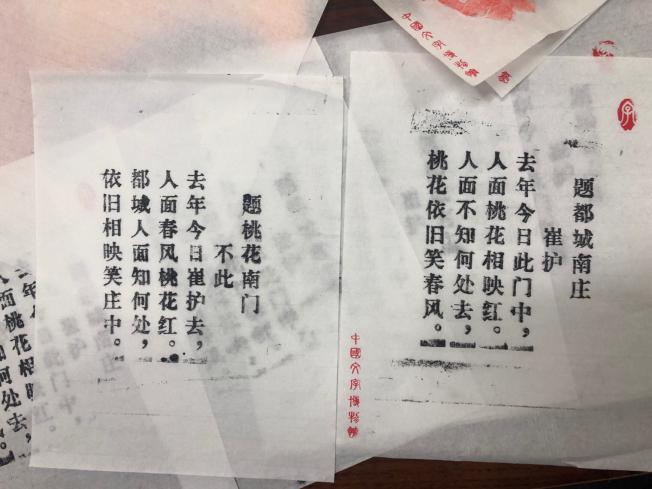 题都城南庄
崔护
去年今日此门中，
人面桃花相映红。
人面不知何处去，
桃花依旧笑春风。
中國文字博物館
题桃花南门
不此
去年今日崔护去，
人面春风桃花红。
都城人面知何处，
依旧相映笑庄中。
中國文字博物館
人面桃花相映
何处去，